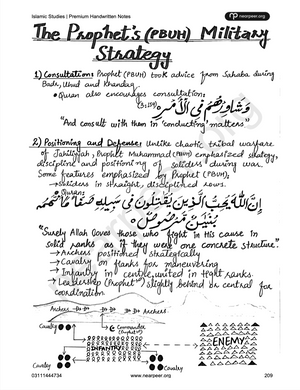 Islamic Studies | Premium Handwritten Notes
nearpeer.org
The Prophet's (PBUH) Military
Strategy
1) Consultation: Prophet (PBUH) took advice from Sahaba during
Badr, Uhud and Khandaq.
• Quran also encourages consultation:
وَشَاوِرْهُمْ فِي الْأَمْرِ
(3:159)
"And consult with them in 'conducting' matters"
2) Positioning and Defense: Unlike chaotic tribal warfare
of Jahiliyyah, Prophet Muhammad (PBUH) emphasized strategy,
discipline and positioning of soliders during war.
Some features emphasized by Prophet (PBUH).
→ Soliders in straight, disciplined rows.
Quran:
إِنَّ اللَّهَ يُحِبُّ الَّذِينَ يُقَاتِلُونَ فِي سَبِيلِهِ صَفًّا كَأَنَّهُمْ
بُنْيَانٌ مَرْصُوصٌ
"Surely Allah loves those who fight in his cause in
solid ranks as if they were one concrete structure."
→ Archers positioned strategically
→ Cavalry on flanks for maneuvering
→ Infantry in centle, united in tight ranks.
→ Leadership (Prophet) slightly behind or central for
coordination.
Archers
Archers
Cavalry
Commander
(Prophet)
Cavalry
INFANTRY
ENEMY
Cavalry
Cavalry
03111444734
www.nearpeer.org
209